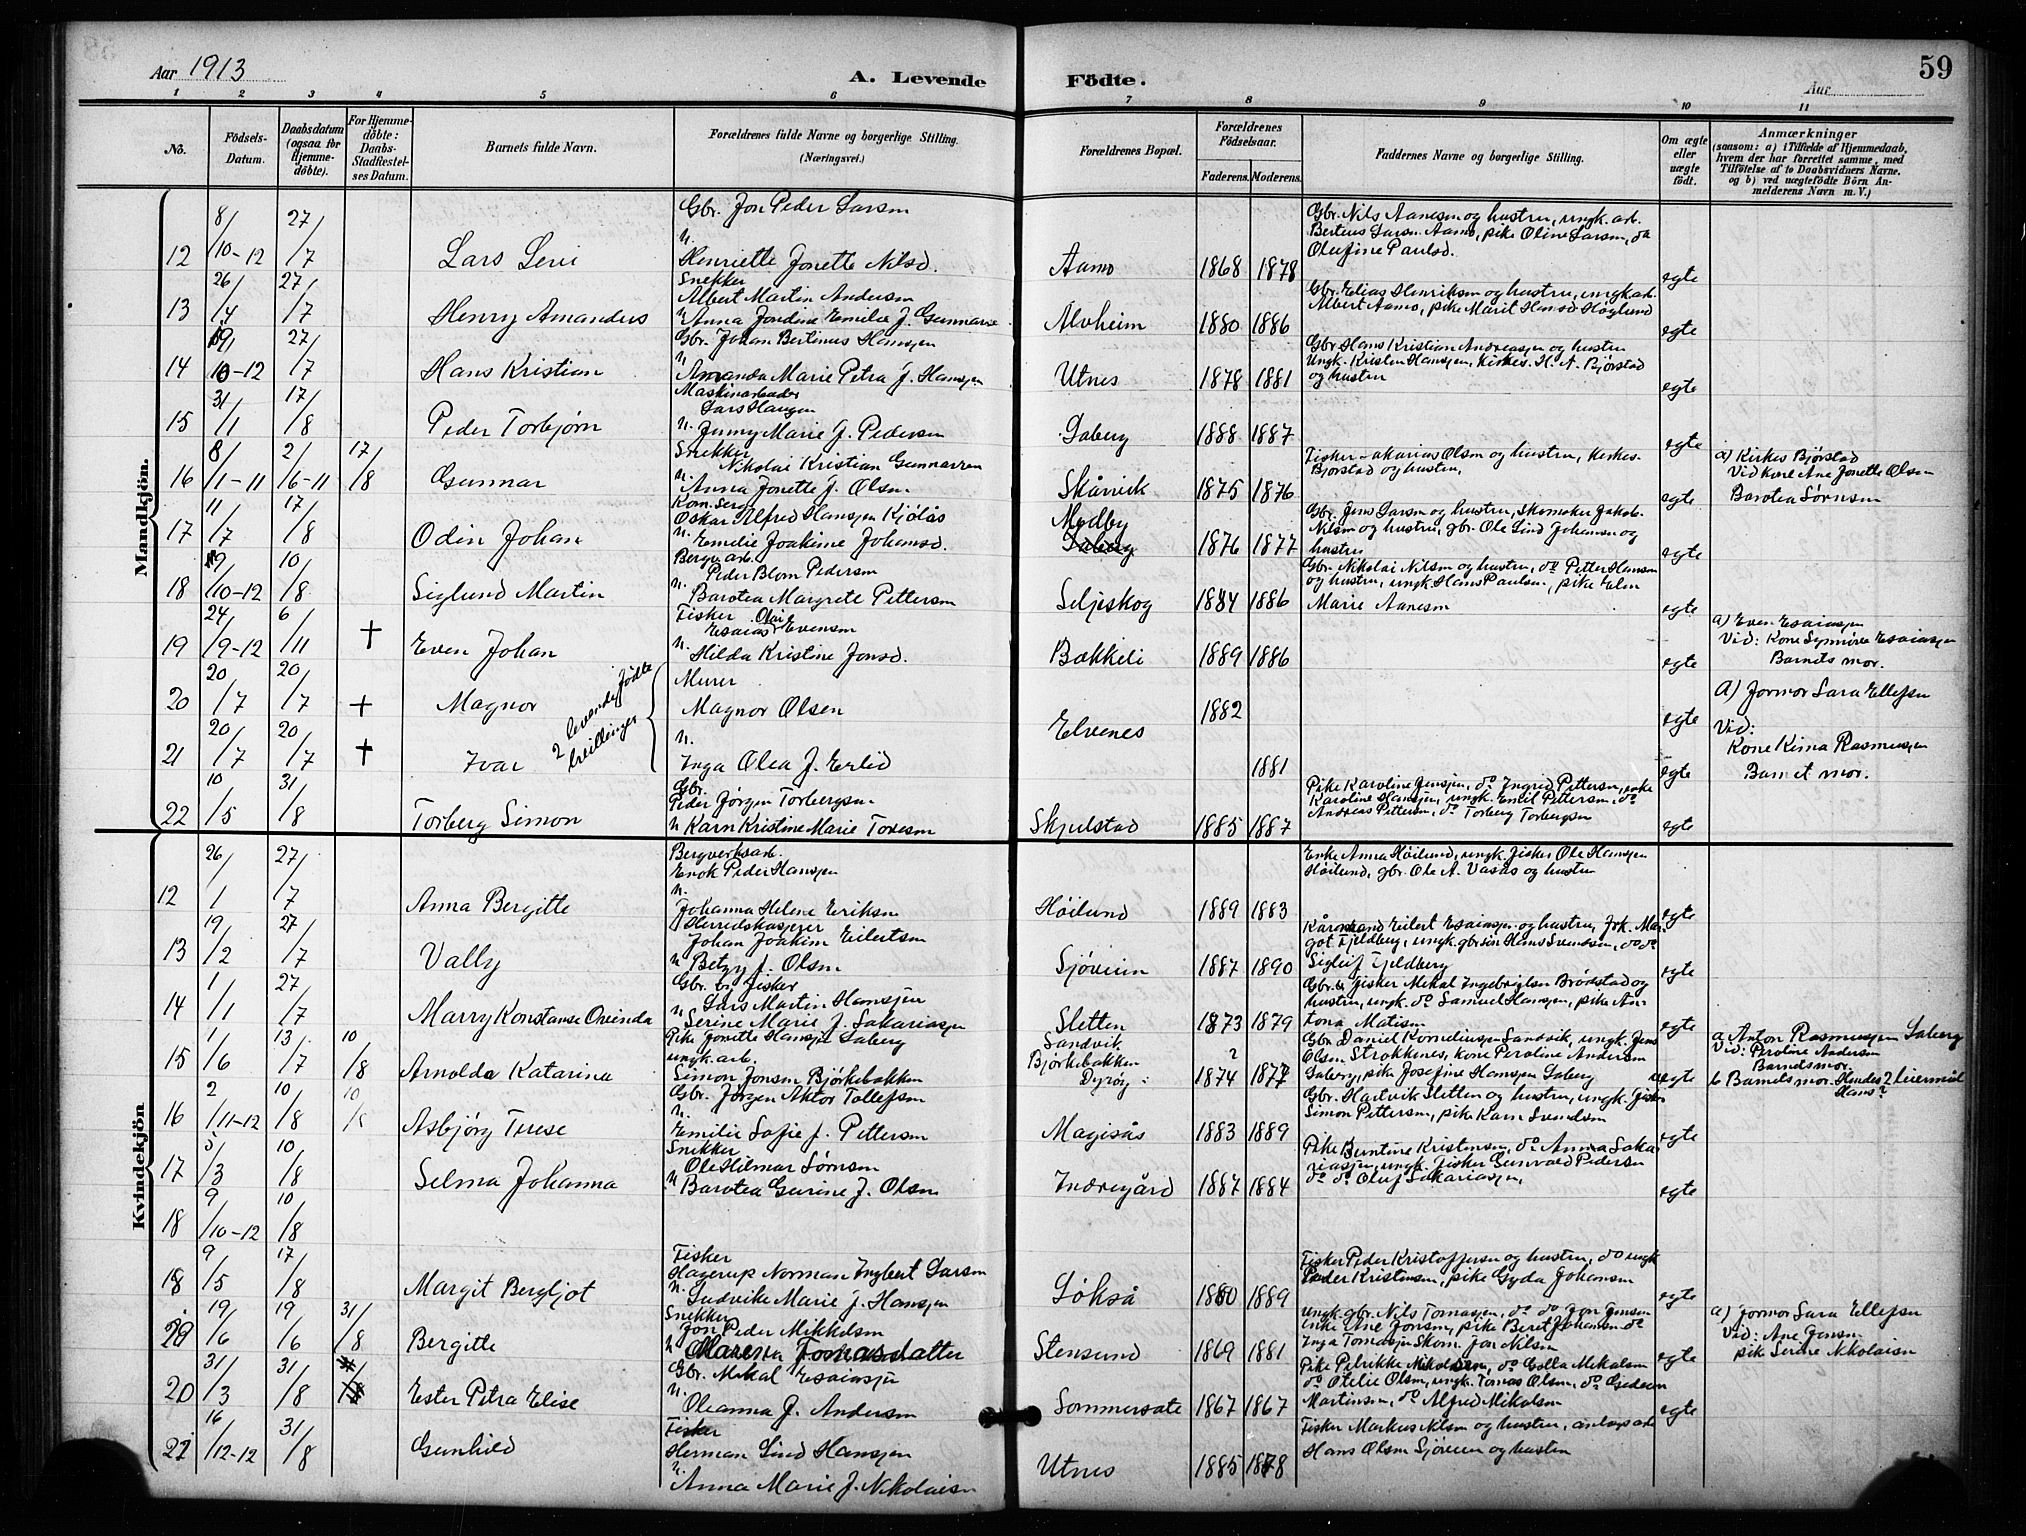 59
Aar 1913
A. Levende
Födte.
Aar
1 2 3 4 5 6 7 8 9 10 11
No.
Födsels-
Datum.
Daabsdatum
(ogsaa for
Hjemme-
döbte).
For Hjemme-
döbte:
Daabs-
Stadfæstel-
ses Datum.
Barnets fulde Navn.
Forældrenes fulde Navne og borgerlige Stilling.
(Næringsvei.)
Forældrenes Bopæl.
Forældrenes
Födselsaar.
Faderens. Moderens.
Faddernes Navne og borgerlige Stilling.
Om ægte
eller
uægte
födt.
Anmærkninger
(saasom: a) i Tilfælde af Hjemmedaab,
hvem der har forrettet samme, med
Tilföielse af to Daabsvidners Navne.
og b) ved uægtefödte Börn An-
melderens Navn m. V.)
Mandkjön.
12 8/10-12 27/7 Lars Levi
Gbr. Jon Peder Larsen
Henriette Jonette Nilsd.
Aamo 1868 1878
Gbr. Nils Aanesen og hustru, ungk. arb.
Berteus Larsn. Aamo, pike Oline Larsen, do
Olufine Paulsd.
egte
13 26/4 27/7 Henry Amandus
Snekker
Albert Martin Andersen
Anna Jondine Emilie J. Gunnarsen
Alvheim 1880 1886
Gbr. Elias Henriksen og hustru, ungk. arb.
Albert Aamo, pike Marit Hansd Høglund
egte
14 10-12 27/7 Hans Kristian
Gbr. Johan Bertinus Hansen
Amanda Marie Petra J. Hansen
Utnes 1878 1881
Gbr Hans Kristian Andreassen og hustru
Ungk. Kristen Hansen, Kirkes. H. A. Bjørstad
og hustru
egte
15 31/1 17/8 Peder Torbjørn
Maskinarbeider
Lars Haugen
Jenny Marie J. Pedersen
Laberg 1888 1887
egte
16 8/1-11 2/6-11 17/8 Gunnar
Snekker
Nikolai Kristian Gunnarsen
Anna Jonette J. Olsen
Skårvik 1875 1876
Fisker Sakarias Olsen og hustru, kirkes.
Bjørstad og hustru,
egte
a) Kirkes Bjørstad
Vid Kone Ane Jonette Olsen
Barotea Sørensen
17 11/7 17/8 Odin Johan
Kom. Serg.
Oskar Alfred Hansen Kjølås
Emelie Joakime Johansd.
Medby
Laberg
1876 1877
Gbr. Jens Larsen og hustru, Skomaker Jakob
Nilsen og hustru, gbr. Ole Lind Johansen og
hustru
egte
18 10-12 10/8 Siglund Martin
Bergv. arb.
Peder Blom Pedersen
Barotea Margrete Pettersen
Seljeskog 1884 1886
Gbr. Nikolai Nilsen og hustru, do Petter Hansen
og hustru, ungk. Hans Paulsen, pike Elen
Marie Aanesen
egte
19 24/9-12 6/11 † Even Johan
Fisker Olai
Esaias Evensen
Hilda Kristine Jonsd.
Bakkeli 1889 1886
egte
a) Even Esaiassen
Vid: Kone Synnøve Esaiassen
Barnets mor.
20 20/7 20/7 † Magnor
2 levende fødte
tvillinger
Murer
Magnor Olsen
Elvenes 1882
egte
A) Jormor Sara Ellefsen
21 20/7 20/7 † Ivar
Inga Olea J. Erlid
1881
egte
Vid:
Kone Kima Rasmussen
Barnet mor.
22 10/5 31/8 Torberg Simon
Gbr.
Peder Jørgen Torbergsen
Karn Kristine Marie Toresen
Skjelstad 1885 1887
Pike Karoline Jensen, do Ingrid Pettersen, enke
Karoline Hansen, ungk. Emil Pettersen, do
Andreas Pettersen, do Torberg Torbergsen
egte
Kvindekjön
12 26/1 27/7 Anna Bergitte
Bergverksarb.
Enok Peder Hansen
Johanna Helene Eriksen
Høilund 1889 1883
Enke Anna Høilund, ungk. fisker Ole Hansen
Høilund, gbr. Ole A. Vasås og hustru
egte
13 19/2 27/7 Vally
Herredskasserer
Johan Joakim Eilertsen
Betzy J. Olsen
Sjøveien 1887 1890
Eilert Esaiassen og hustru, frk. Mar-
got Fjeldberg, ungk. gbr. søn Hans Svendsen, do do
Sigleif Fjeldberg
egte
14 1/1 27/7 Marry Konstanse Oveinda
Gbr. og fisker
Lars Martin Hansen
Serine Marie J. Sakariassen
Sletten 1873 1879
Gbr. & fisker Mikal Ingebrigtsen Brødstad og
hustru, ungk. do Samuel Hansen, pike An-
tona Matisen
egte
15 1/6 13/7 10/8 Arnolda Katarina
Pike Jonette Hansen Laberg
ungk. arb.
Simon Jonsen Bjørkebakken
Sandvik
Bjørkebakken
Dyrøy
1874 1877
Gbr. Daniel Korneliussen Sandvik, ungk. Jens
Olsen Strokkenes, kone Peroline Andersen
Laberg, pike Josefine Hansen Laberg
uegte
a Anton Rasmussen Laberg
Vid: Peroline Andersen
Barnets mor.
b Barnets mor. Hendes 2 leiermål
Hans?
16 2/11-12 10/8 10/8 Asbjørg Terese
Gbr. Jørgen Aktor Tollefsen
Emilie Sofie J. Pettersen
Magisås 1883 1889
Gbr. Hartvik Sletten og hustru, ungk. fisker
Simon Pettersen, pike Karn Svendsen
egte
17 5/3 10/8 Selma Johanna
Snekker
Ole Hilmar Sørensen
Barotea Gurine J. Olsen
Indregård 1887 1884
Pike Berntine Kristensen, do Anna Saka-
riassen, ungk. fisker Gunvald Pedersen
do do Oluf Sakariassen,
egte
18 9/10-12 10/8
18 9/5 17/8 Margit Bergljot
Fisker
Hagerup Norman Ingbert Larsen
Ludvike Marie J. Hansen
Løkså 1880 1889
Fisker Peder Kristoffersen og hustru, do ungk.
Peder Kristensen, pike Gyda Johansen
egte
20 19/6 19/6 31/8 Bergitte
Snekker
Jon Peder Mikkelsen
Maren Tomasdatter
Stensund 1869 1881
ungk. gbr. Nils Tomassen, do do Jon Jensen
enke Ane Jonsen, pike Beret Johansen do
Inga Tomassen Skom. Jon Nilsen
egte
a) Jormor Sara Ellefsen
Vid: Ane Jonsen
pike Serine Nikolaisen
20 31/3 31/8 Ester Petra Elise
Gbr. Mikal Esaiassen
Oleanna J. Andersen
Sommersæte 1867 1867
Pike Petrikke Nikolaisen, do Golla Mikalsen
do Otelie Olsen, ungk. Tomas Olsen, do Gedeon
Martinsen, do Alfred Mikalsen
egte
21 16/12-12 31/8 Gunhild
Fisker
Herman Lind Hansen
Anna Marie J. Nikolaisen
Utnes 1885 1878
Fisker Markus Nilsen og hustru, anlægs arb
Hans Olsen Sjøveien og hustru